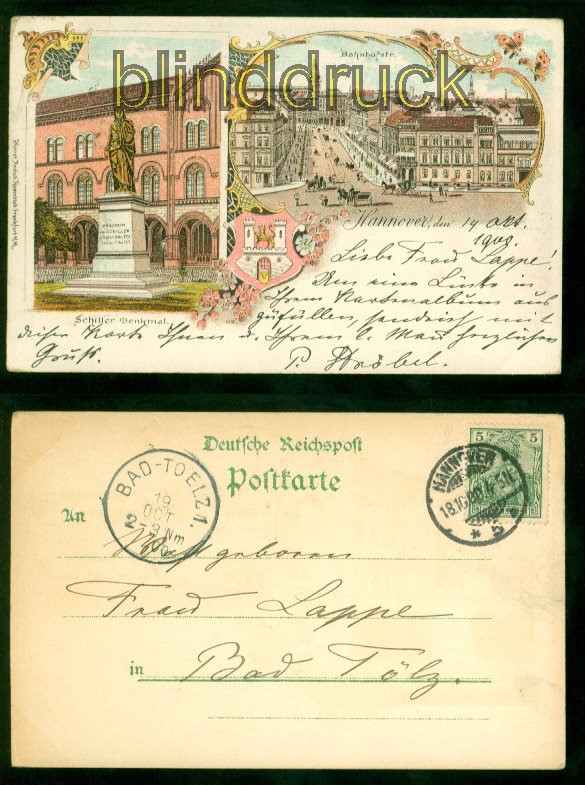 blinddruck
Bahnhofstr.
Hannover, den 14 Okt.
1900.
Liebe Frau Lappe!
Um eine Lücke in
Ihrem Kartenalbum aus
zufüllen, sende ich mit
dieser Karte Ihnen u. Ihrem l. Mar herzlichen
Gruß. P. Ströbel.
Schiller Denkmal.
Deutsche Reichspost
Postkarte
An
BAD-TOELZ 1.
19
OCT
2-3 Nm
HANNOVER
18.10.00
* 5 *
5 5
Frau Lappe
in Bad Tölz.